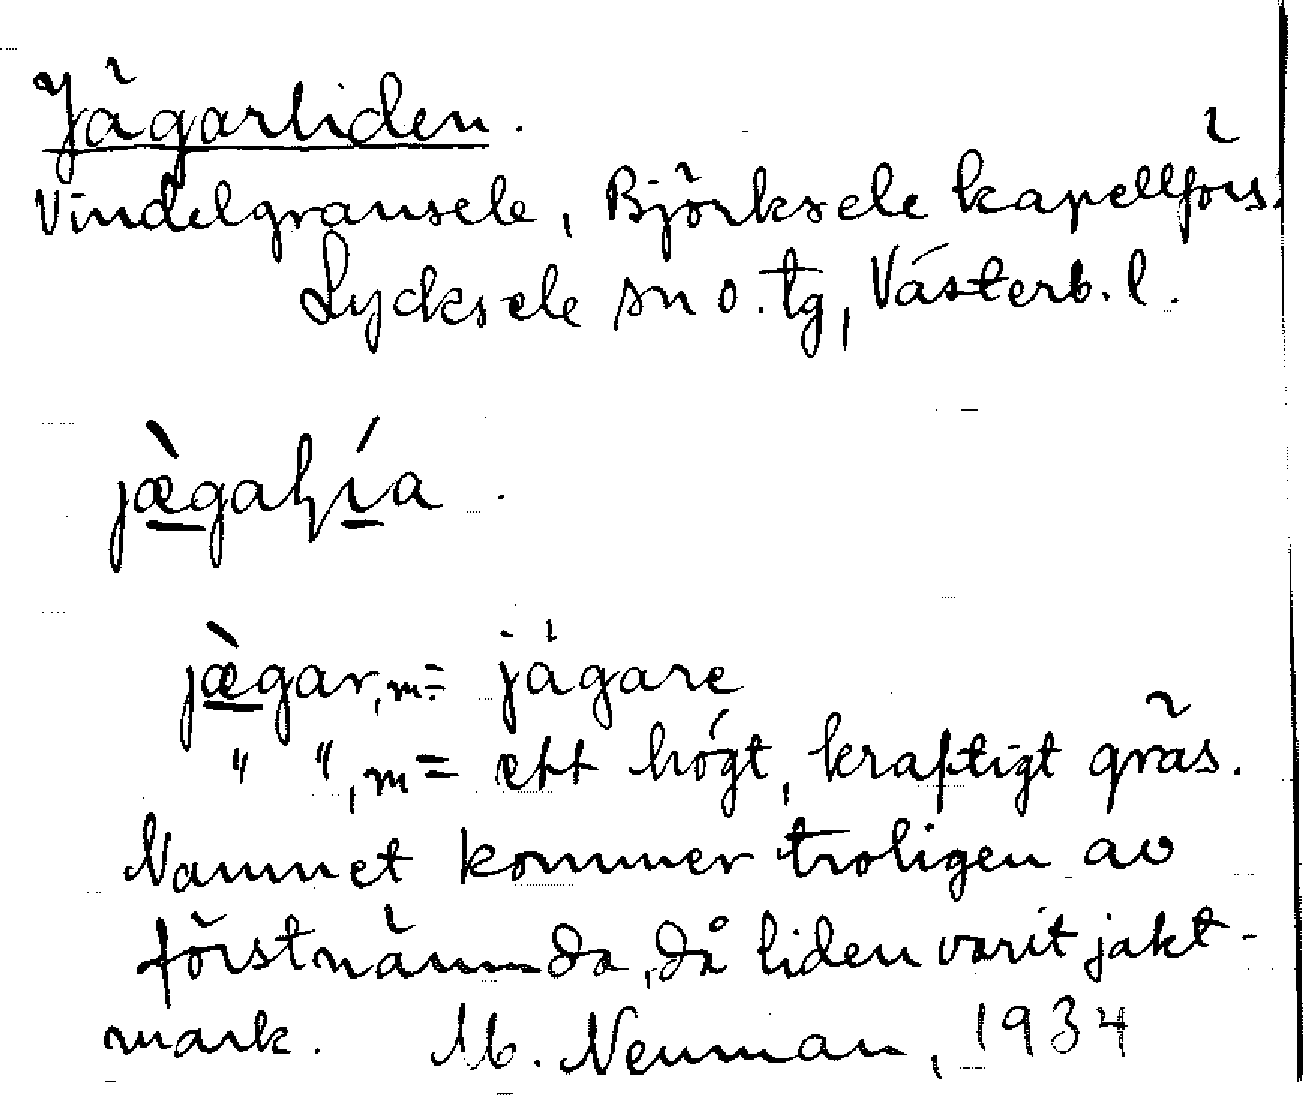 Jägarliden.
Vindelgransele, Björksele kapellförs.
Lycksele sn o. tg, Västerb. l.
jæ̀gaḷía.
jæ̀gar, m = jägare
" ", m = ett högt, kraftigt gräs.
Namnet kommer troligen av
förstnämnda, då liden varit jakt-
mark. M. Neuman, 1934